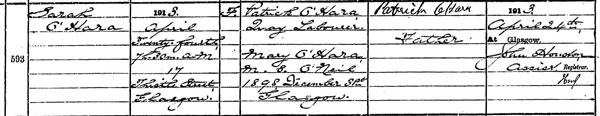 593
Sarah
O'Hara
1913.
April
Twenty-fourth
7h. 30m. A.M.
17
Thistle Street
Glasgow.
F.
Patrick O'Hara
Quay Labourer
Mary O'Hara
M.S. O'Neil
1898 December 31st
Glasgow.
Patrick O'Hara
Father
1913
April 24th
At Glasgow.
John Houston
Assist. Registrar.